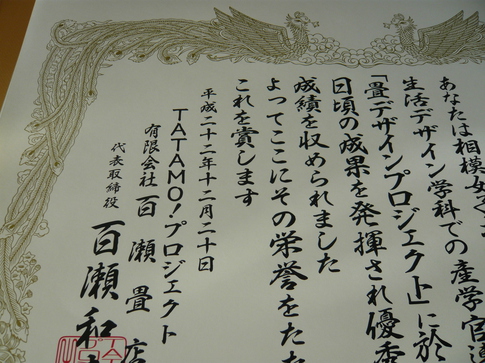 あなたは相模女子
生活デザイン学科での産学官連
「畳デザインプロジェクト」に於
日頃の成果を発揮され優秀
成績を収められました
よってここにその栄誉をたた
これを賞します
平成二十二年十二月二十日
TATAMO!プロジェクト
有限会社 百瀬畳店
代表取締役 百瀬和